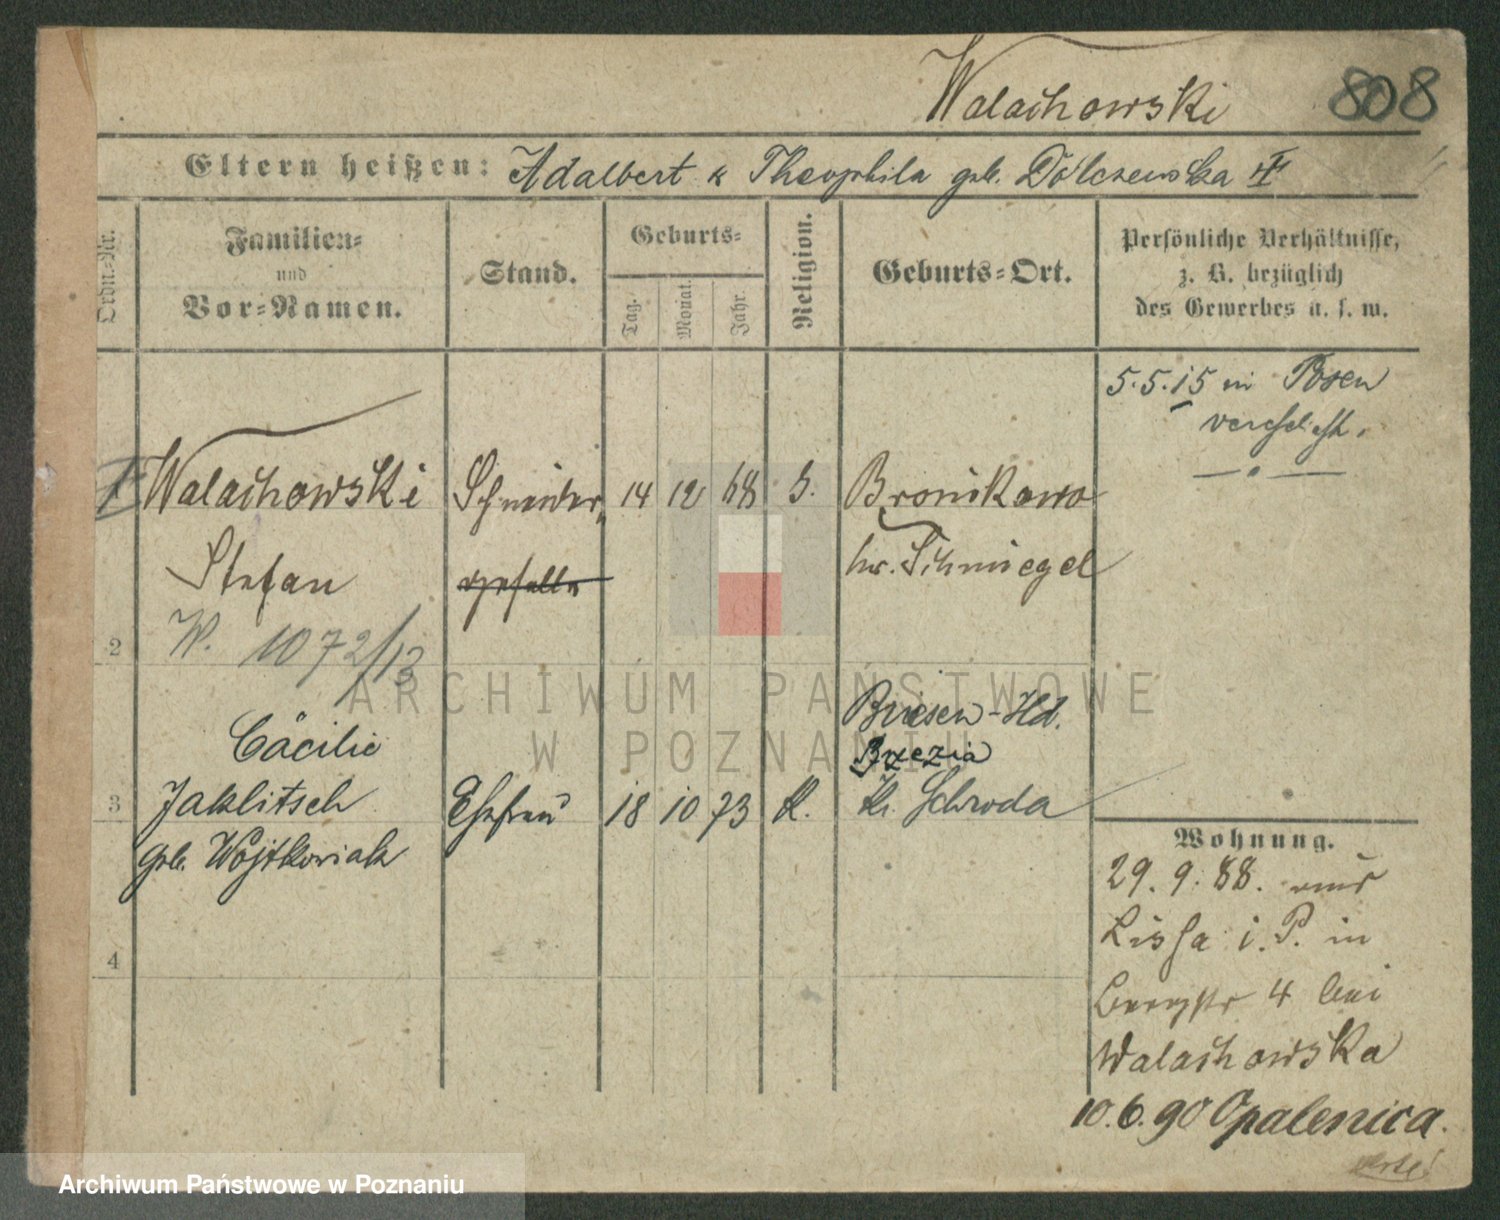 Walachowski 808
Eltern heißen: Adalbert & Theophila geb. Dolczewska
Ordn.-Nr.
Familien-
und
Vor-Namen.
Stand.
Geburts-
Tag.
Monat.
Jahr.
Religion.
Geburts-Ort.
Persönliche Verhältnisse,
z. B. bezüglich
des Gewerbes u. s. w.
5.5.15 in Posen
verehel.
1 Walachowski Schneider 14 12 68 Bronikowo
Stefan geselle kr. Schmiegel
W. 1072/13
2
Cäcilie Briesen-Hld.
Brzezia
3 Jaklitsch Ehefrau 18 10 73 K. Kr. Schroda
geb. Wojtkowiak
4
Wohnung.
29. 9. 88. aus
Lissa i. P. in
Bergstr 4 bei
Walachowska
10.6.90 Opalenica.
ARCHIWUM PAŃSTWOWE
W POZNANIU
Archiwum Państwowe w Poznaniu